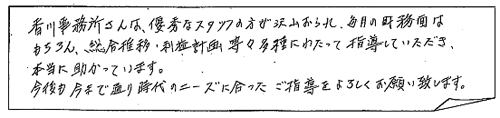 香川事務所さんは、優秀なスタッフの方が沢山おられ、毎月の財務面は
もちろん、総合推移・利益計画等々多種にわたって指導していただき、
本当に助かっています。
今後も今まで通り時代のニーズに合ったご指導をよろしくお願い致します。